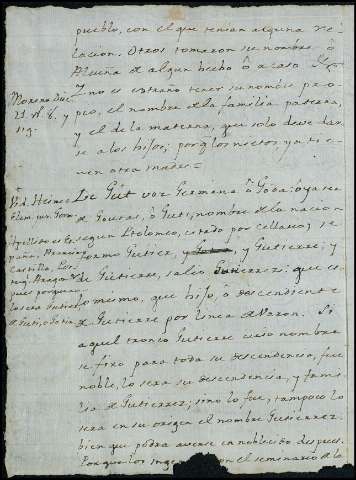 pueblo, con el que tenian alguna re-
lacion. Otros tomaron su nombre ô
de alguna de algun hecho ô acaso
no es extraño tener su nombre pro-
pio, el nombre de la familia paterna,
y el de la materna, que solo deve dar-
se a los hijos; porq los nietos ya tie-
nen otra madre=
Moreno
21. §. 6. y
sig.
De Gut voz Germana ô Goda: ô ya sea
de Goutas, ô Guti, nombre de la nacion
segun Ptolomeo, citado por cellario; se
formo Gutier, y Gutierre; y
de Gutierre, salio Gutierrez: que es
lo mismo, que hijo, ô descendiente
de Gutierre por linea de Varon. Si
aquel tronco Gutierre cuio nombre
se fixo para toda su descendencia, fue
noble, lo sera su descendencia, y fami-
lia de Gutierrez; sino lo fue, tampoco lo
sera en su origen el nombre Gutierrez
bien que podra averse en noblecido despues.
Porque los con el seminario de la
Vid. Heinec
Elem. jur. Germ
Apellido en Es-
paña,
Castilla, Leon
Aragon
pues porque